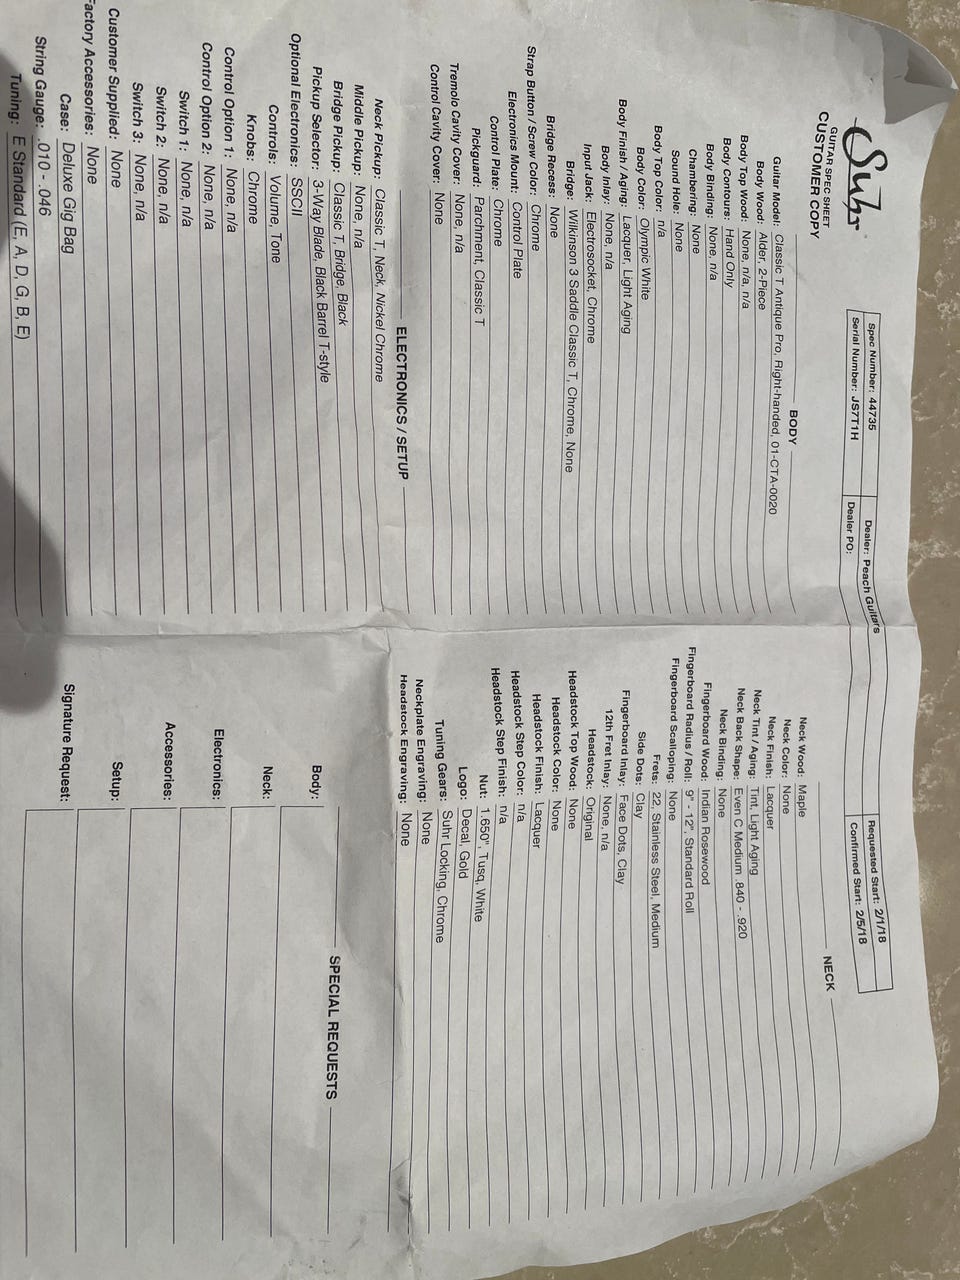 Suhr
GUITAR SPEC SHEET
CUSTOMER COPY
Spec Number: 44735
Serial Number: JS7T1H
Dealer: Peach Guitars
Dealer PO:
Requested Start: 2/1/18
Confirmed Start: 2/5/18
BODY
Guitar Model: Classic T Antique Pro, Right-handed, 01-CTA-0020
Body Wood: Alder, 2-Piece
Body Top Wood: None, n/a, n/a
Body Contours: Hand Only
Body Binding: None, n/a
Chambering: None
Sound Hole: None
Body Top Color: n/a
Body Color: Olympic White
Body Finish / Aging: Lacquer, Light Aging
Body Inlay: None, n/a
Input Jack: Electrosocket, Chrome
Bridge: Wilkinson 3 Saddle Classic T, Chrome, None
Bridge Recess: None
Strap Button / Screw Color: Chrome
Electronics Mount: Control Plate
Control Plate: Chrome
Pickguard: Parchment, Classic T
Tremolo Cavity Cover: None, n/a
Control Cavity Cover: None
NECK
Neck Wood: Maple
Neck Color: None
Neck Finish: Lacquer
Neck Tint / Aging: Tint, Light Aging
Neck Back Shape: Even C Medium .840 - .920
Neck Binding: None
Fingerboard Wood: Indian Rosewood
Fingerboard Radius / Roll: 9" - 12", Standard Roll
Fingerboard Scalloping: None
Frets: 22, Stainless Steel, Medium
Side Dots: Clay
Fingerboard Inlay: Face Dots, Clay
12th Fret Inlay: None, n/a
Headstock: Original
Headstock Top Wood: None
Headstock Color: None
Headstock Finish: Lacquer
Headstock Step Color: n/a
Headstock Step Finish: n/a
Nut: 1.650", Tusq, White
Logo: Decal, Gold
Tuning Gears: Suhr Locking, Chrome
Neckplate Engraving: None
Headstock Engraving: None
ELECTRONICS / SETUP
Neck Pickup: Classic T, Neck, Nickel Chrome
Middle Pickup: None, n/a
Bridge Pickup: Classic T, Bridge, Black
Pickup Selector: 3-Way Blade, Black Barrel T-style
Optional Electronics: SSCII
Controls: Volume, Tone
Knobs: Chrome
Control Option 1: None, n/a
Control Option 2: None, n/a
Switch 1: None, n/a
Switch 2: None, n/a
Switch 3: None, n/a
Customer Supplied: None
Factory Accessories: None
Case: Deluxe Gig Bag
String Gauge: .010 - .046
Tuning: E Standard (E, A, D, G, B, E)
SPECIAL REQUESTS
Body:
Neck:
Electronics:
Accessories:
Setup:
Signature Request: